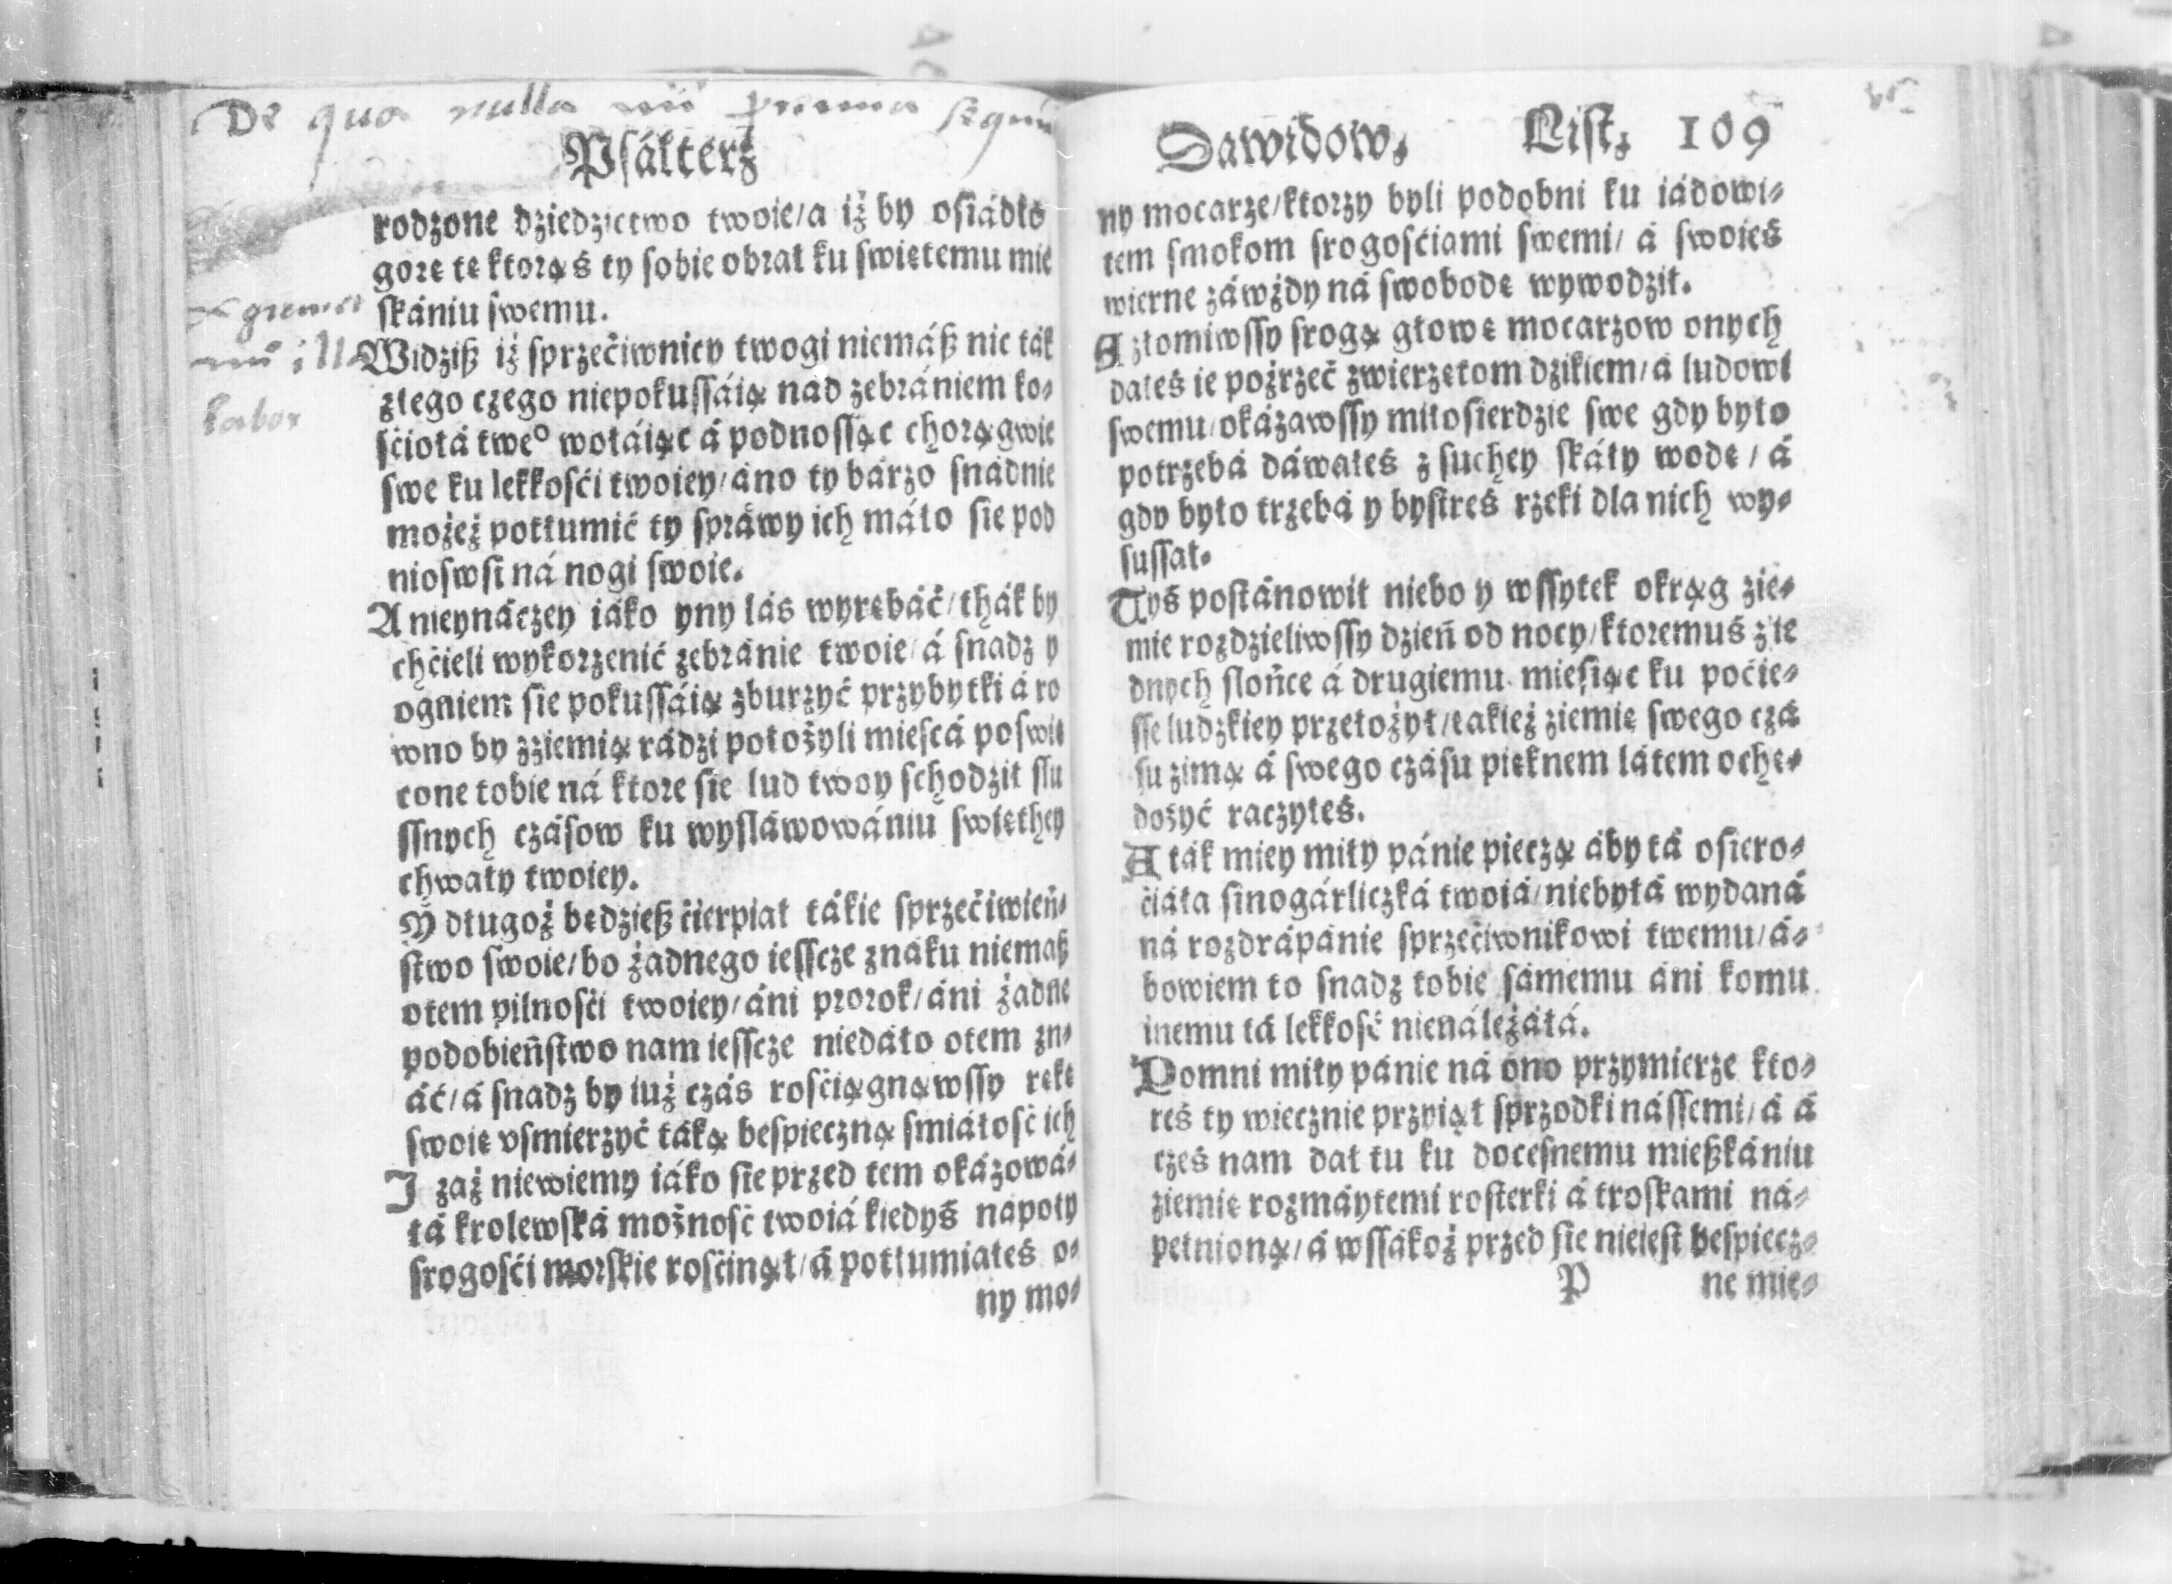 De qua nulla
Psáłterz
rodzone dziedzictwo twoie/a iż by osiádło
gorę tę ktorąś ty sobie obrał ku swiętemu mie
skániu swemu.
Widziß iż sprzećiwnicy twogi niemáß nic ták
złego czego niepokussáią nad zebrániem ko⸗
śćiołá tweº wołáiąc á podnossąc chorągwie
swe ku lekkośći twoiey/áno ty bárzo snádnie
możeż potłumić ty spráwy ich máło sie pod
nioswsi ná nogi swoie.
A nieynáczey iáko yny lás wyrębáć/thák by
chćieli wykorzenić zebránie twoie/á snadz y
ogniem sie pokussáią zburzyć przybytki á ro
wno by zziemią rádzi położyli miescá poswię
cone tobie ná ktore sie lud twoy schodził słu
ssnych czásow ku wysláwowániu swięthey
chwały twoiey.
Y długoż będzieß ćierpiał tákie sprzećiwień⸗
stwo swoie/bo żadnego iesscze znáku niemaß
otem pilnośći twoiey/áni prorok/áni żadne
podobieństwo nam iesscze niedáło otem zn⸗
áć/á snadz by iuż czás rośćiągnąwssy rękę
swoię vsmierzyć táką bespieczną smiáłość ich
I zaż niewiemy iáko sie przed tem okázowá⸗
łá krolewská możność twoiá kiedyś napoły
srogośći morskie rośćinął/á potłumiałeś o⸗
ny mo⸗
Dawidow. List. 109
ny mocarze/ktorzy byli podobni ku iádowi⸗
tem smokom srogośćiami swemi/ á swoieś
wierne záwżdy ná swobodę wywodził.
A złomiwssy srogą głowę mocarzow onych
dałeś ie pożrzeć zwierzętom dzikiem/á ludowi
swemu/okázawssy miłosierdzie swe gdy było
potrzebá dáwałeś z suchey skáły wodę/á
gdy było trzebá y bystreś rzeki dla nich wy⸗
sussał.
Tyś postánowił niebo y wssytek okrąg zie⸗
mie rozdzieliwssy dzień od nocy/ktoremuś z ie
dnych slońce á drugiemu miesiąc ku poćie⸗
sse ludzkiey przełożył/takież ziemię swego czá
su zimą á swego czásu pięknem látem ochę⸗
dożyć raczyłeś.
A ták miey miły pánie pieczą áby tá osiero⸗
ćiáła sinogárliczká twoiá/niebyłá wydaná
ná rozdrápánie sprzećiwnikowi twemu/á⸗
bowiem to snadz tobie sámemu áni komu
inemu tá lekkość nienáleżáłá.
Pomni miły pánie ná ono przymierze kto⸗
reś ty wiecznie przyiął sprzodki nássemi/á á
cześ nam dał tu ku docesnemu mießkániu
ziemię rozmáytemi rosterki á troskami ná⸗
pełnioną/á wssákoż przed sie nieiest bespiecz⸗
P ne mie⸗